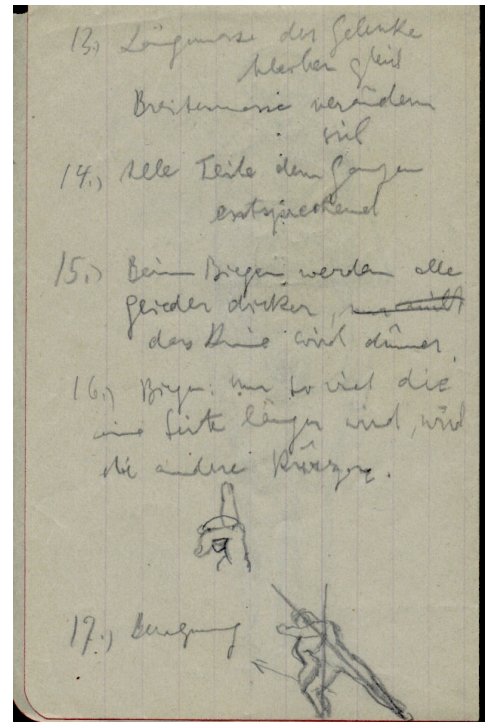 13.) Längenmasse der Gelenke
bleiben gleich
Breitenmasse verändern
viel
14.) Alle Teile dem Ganzen
entsprechend
15.) Beim Biegen werden alle
glieder dicker,
das Knie wird dünner.
16.) Biegen: um so viel die
eine Seite länger wird, wird
die andere Kürzer.
17.) Bewegung